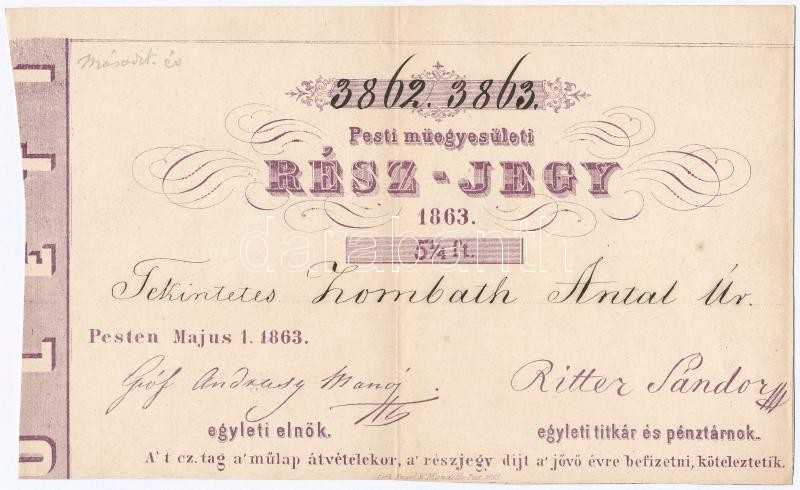 Másodit. év
3862. 3863.
Pesti műegyesületi
RÉSZ-JEGY
1863.
5¼ ft.
darabanth
Tekintetes Zombath Antal Úr.
Pesten Majus 1. 1863.
Gróf Andrássy Manó
Ritter Sándor
egyleti elnök.
egyleti titkár és pénztárnok.
A' t cz. tag a' műlap átvételekor, a' részjegy dijt a' jövő évre befizetni, köteleztetik.